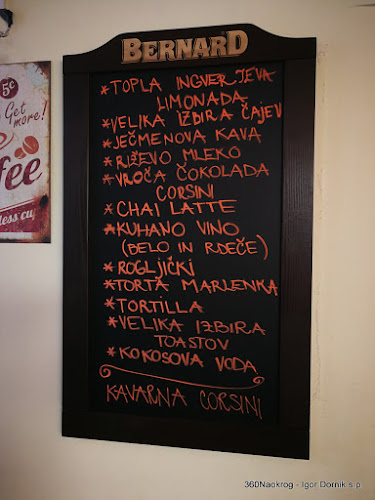 BERNARD
*TOPLA INGVERJEVA
LIMONADA
*VELIKA IZBIRA ČAJEV
*JEČMENOVA KAVA
*RIŽEVO MLEKO
*VROČA ČOKOLADA
CORSINI
*CHAI LATTE
*KUHANO VINO
(BELO IN RDEČE)
*ROGLJIČKI
*TORTA MARLENKA
*TORTILLA
*VELIKA IZBIRA
TOASTOV
*KOKOSOVA VODA
KAVARNA CORSINI
5¢
Get
more!
fee
less cu
360Naokrog - Igor Dornik s.p.